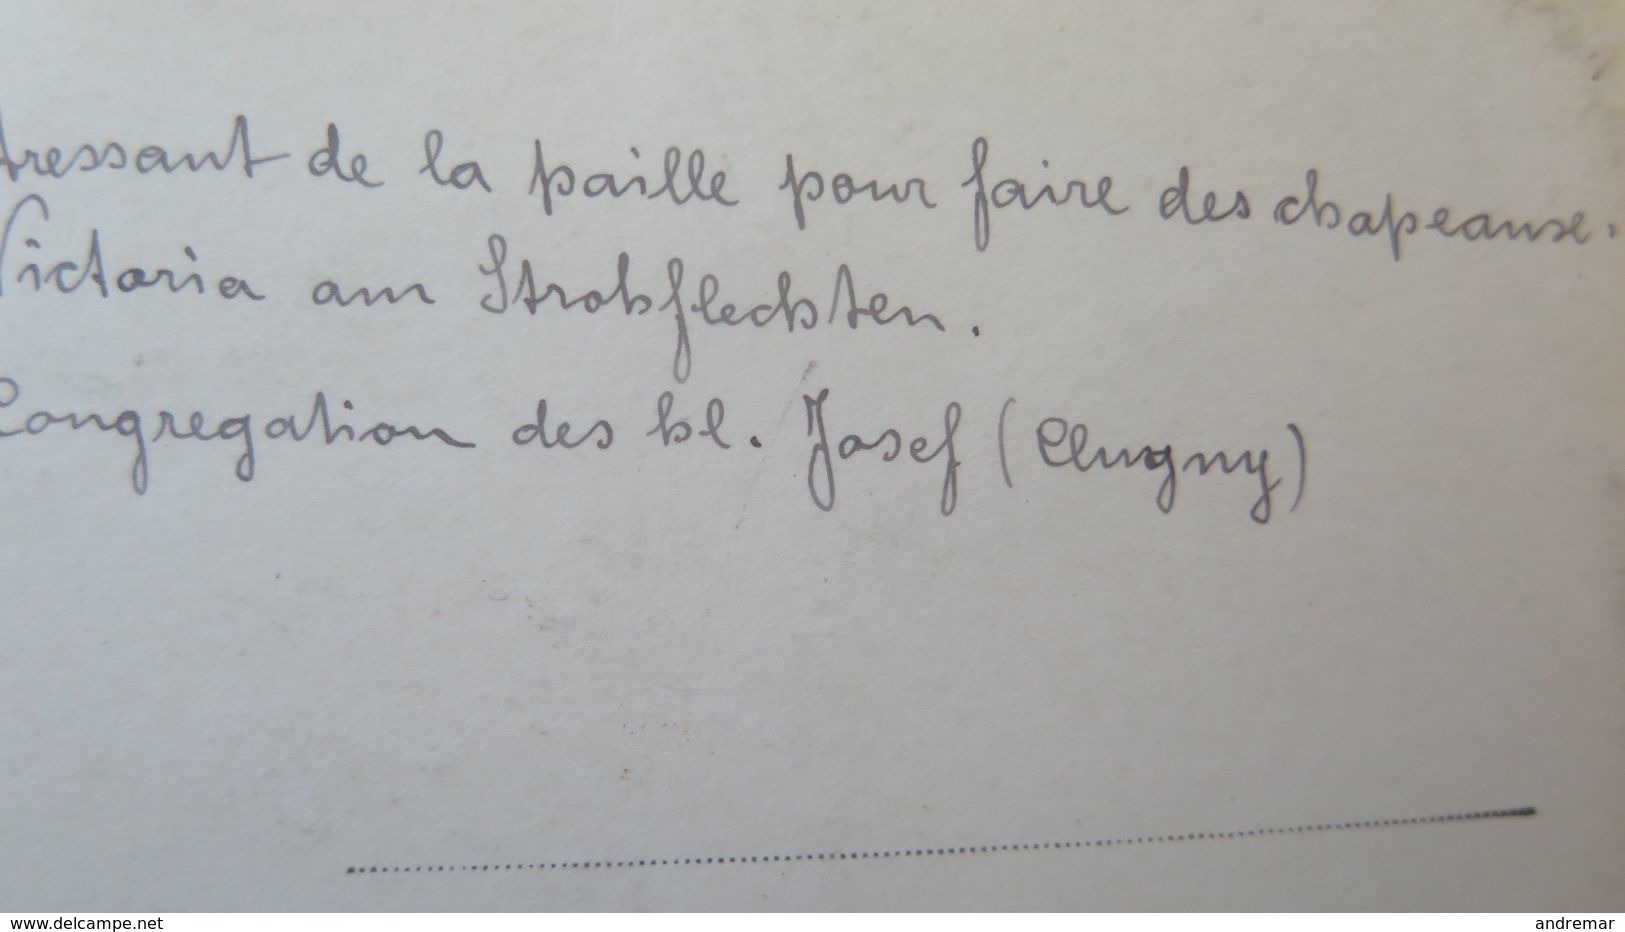 tressant de la paille pour faire des chapeause.
Victoria am Strohflechten.
Congregation des hl. Josef (Clugny)
www.delcampe.net
andremar